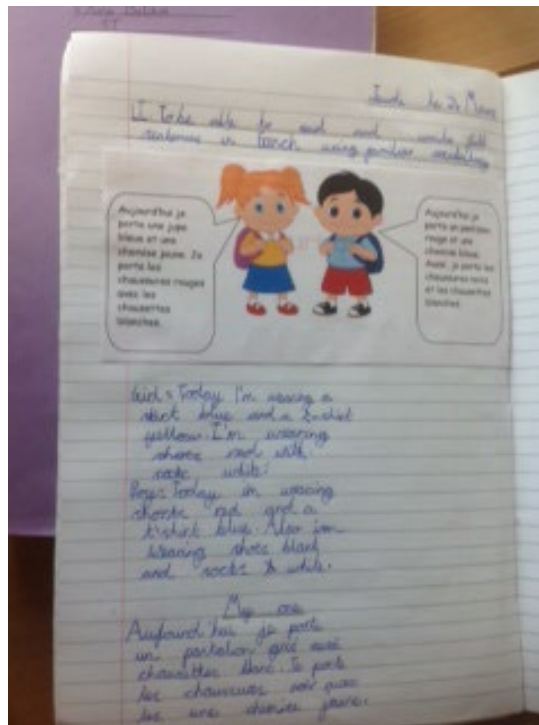 Jeudi le 24 Mars
LI To be able to read and write full
sentences in French using familiar vocabulary
Aujourd'hui je
porte une jupe
bleue et une
chemise jaune. Je
porte les
chaussures rouges
avec les
chaussettes
blanches.
Aujourd'hui je
porte un pantalon
rouge et une
chemise bleue.
Aussi, je porte les
chaussures noirs
et les chaussettes
blanches.
Girl = Today I'm wearing a
skirt blue and a t-shirt
yellow. I'm wearing
shoes red with
socks white.
Boy = Today im wearing
shorts red and a
t'shirt blue. Also im
wearing shoes black
and socks white.
My one
Aujourd'hui je porte
un pantalon gris
chaussettes blanc. Je porte
les chaussures noir avec
les une chemise jaune.